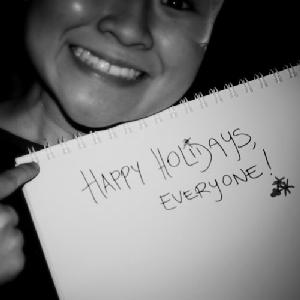 HAPPY HOLIDAYS,
EVERYONE!